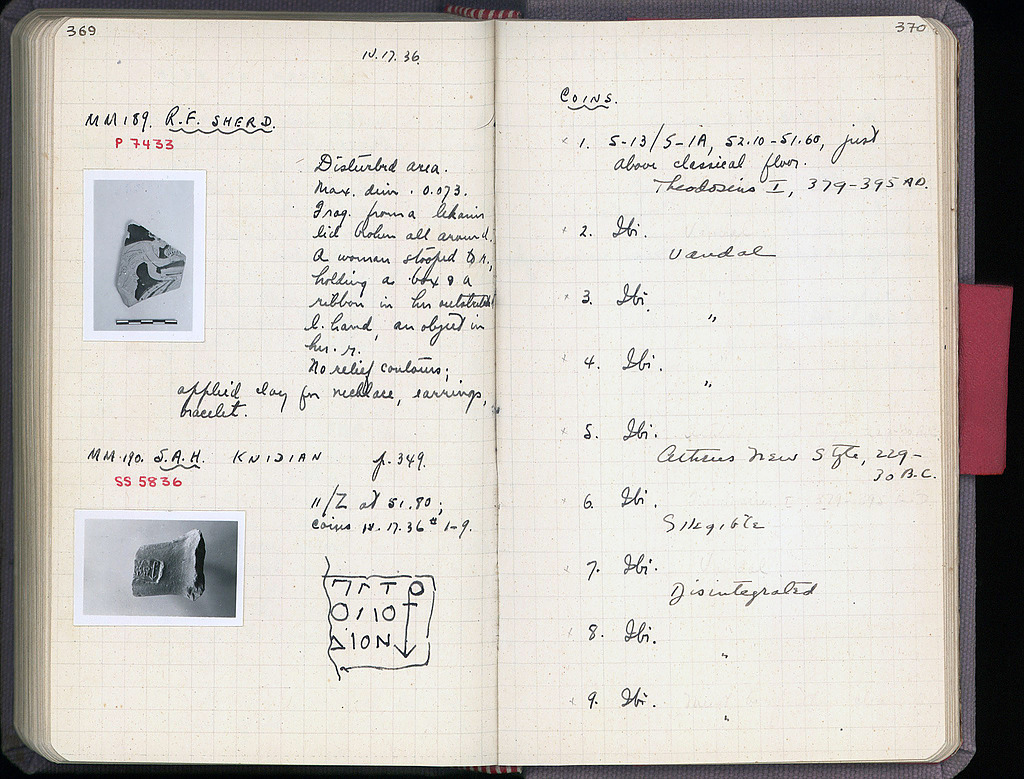 369
IV.17.36
MM 189. R.F. SHERD.
P 7433
Disturbed area.
Max. dim. 0.073.
Frag. from a lekanis
lid broken all around.
A woman stooped to r.,
holding a box & a
ribbon in her outstretched
l. hand, an object in
her r.
No relief contours;
applied clay for necklace, earrings,
bracelet.
MM 190. S.A.H. KNIDIAN p. 349.
SS 5836
11/Z at 51.80;
Coins IV.17.36 # 1-9.
ΔΙΟΝ
370
COINS.
1. 5-13/5-1A, 52.10-51.60, just
above classical floor.
Theodosius I, 379-395 A.D.
2. Ibi.
Vandal
3. Ibi.
"
4. Ibi.
"
5. Ibi.
Athens New Style, 229-
30 B.C.
6. Ibi.
Illegible
7. Ibi.
Disintegrated
8. Ibi.
"
9. Ibi.
"